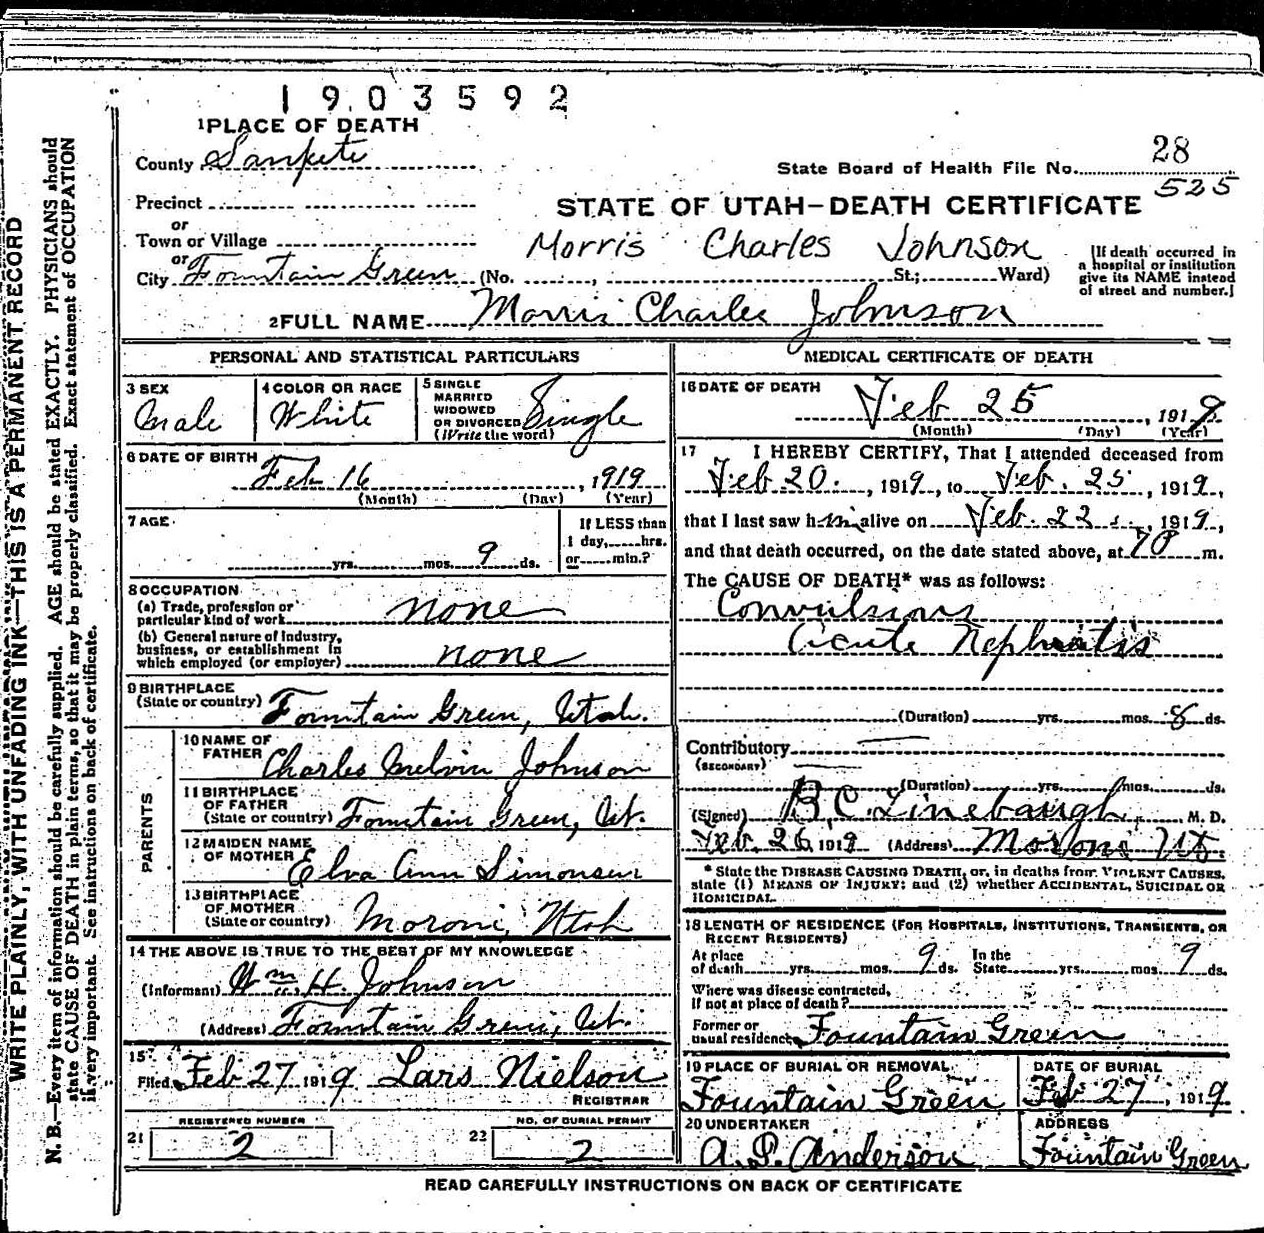 1903592
1PLACE OF DEATH
County Sanpete
State Board of Health File No. 28
525
Precinct
STATE OF UTAH—DEATH CERTIFICATE
or
Town or Village
Morris Charles Johnson
or
City Fountain Green (No. , St.; Ward)
[If death occurred in
a hospital or institution
give its NAME instead
of street and number.]
2FULL NAME Morris Charles Johnson
PERSONAL AND STATISTICAL PARTICULARS
3 SEX
Male
4 COLOR OR RACE
White
5 SINGLE
MARRIED
WIDOWED
OR DIVORCED
(Write the word)
Single
6 DATE OF BIRTH
Feb 16, 1919
(Month) (Day) (Year)
7 AGE
yrs. mos. 9 ds.
If LESS than
1 day, hrs.
or min.?
8 OCCUPATION
(a) Trade, profession or
particular kind of work none
(b) General nature of Industry,
business, or establishment in
which employed (or employer) none
9 BIRTHPLACE
(State or country) Fountain Green, Utah.
PARENTS
10 NAME OF
FATHER Charles Melvin Johnson
11 BIRTHPLACE
OF FATHER
(State or country) Fountain Green, Ut.
12 MAIDEN NAME
OF MOTHER Elva Ann Simonsen
13 BIRTHPLACE
OF MOTHER
(State or country) Moroni, Utah
14 THE ABOVE IS TRUE TO THE BEST OF MY KNOWLEDGE
(Informant) Wm. H. Johnson
(Address) Fountain Green, Ut.
15
Filed Feb 27 1919 Lars Nielson
REGISTRAR
REGISTERED NUMBER
21 2
NO. OF BURIAL PERMIT
22 2
MEDICAL CERTIFICATE OF DEATH
16 DATE OF DEATH
Feb 25, 1919
(Month) (Day) (Year)
17 I HEREBY CERTIFY, That I attended deceased from
Feb 20., 1919, to Feb. 25, 1919,
that I last saw him alive on Feb. 22, 1919,
and that death occurred, on the date stated above, at 7P m.
The CAUSE OF DEATH* was as follows:
Convulsions
Acute Nephritis
(Duration) yrs. mos. 8 ds.
Contributory
(SECONDARY)
(Duration) yrs. mos. ds.
(Signed) B.C. Linebaugh, M. D.
Feb. 26, 1919 (Address) Moroni Ut.
* State the DISEASE CAUSING DEATH, or, in deaths from VIOLENT CAUSES,
state (1) MEANS OF INJURY; and (2) whether ACCIDENTAL, SUICIDAL OR
HOMICIDAL.
18 LENGTH OF RESIDENCE (FOR HOSPITALS, INSTITUTIONS, TRANSIENTS, OR
RECENT RESIDENTS)
At place
of death yrs. mos. 9 ds.
In the
State yrs. mos. 9 ds.
Where was disease contracted,
if not at place of death?
Former or
usual residence Fountain Green
19 PLACE OF BURIAL OR REMOVAL
Fountain Green
DATE OF BURIAL
Feb 27, 1919.
20 UNDERTAKER
A. P. Anderson
ADDRESS
Fountain Green
READ CAREFULLY INSTRUCTIONS ON BACK OF CERTIFICATE
WRITE PLAINLY, WITH UNFADING INK—THIS IS A PERMANENT RECORD
N. B.—Every item of information should be carefully supplied. AGE should be stated EXACTLY. PHYSICIANS should
state CAUSE OF DEATH in plain terms, so that it may be properly classified. Exact statement of OCCUPATION
is very important. See instructions on back of certificate.